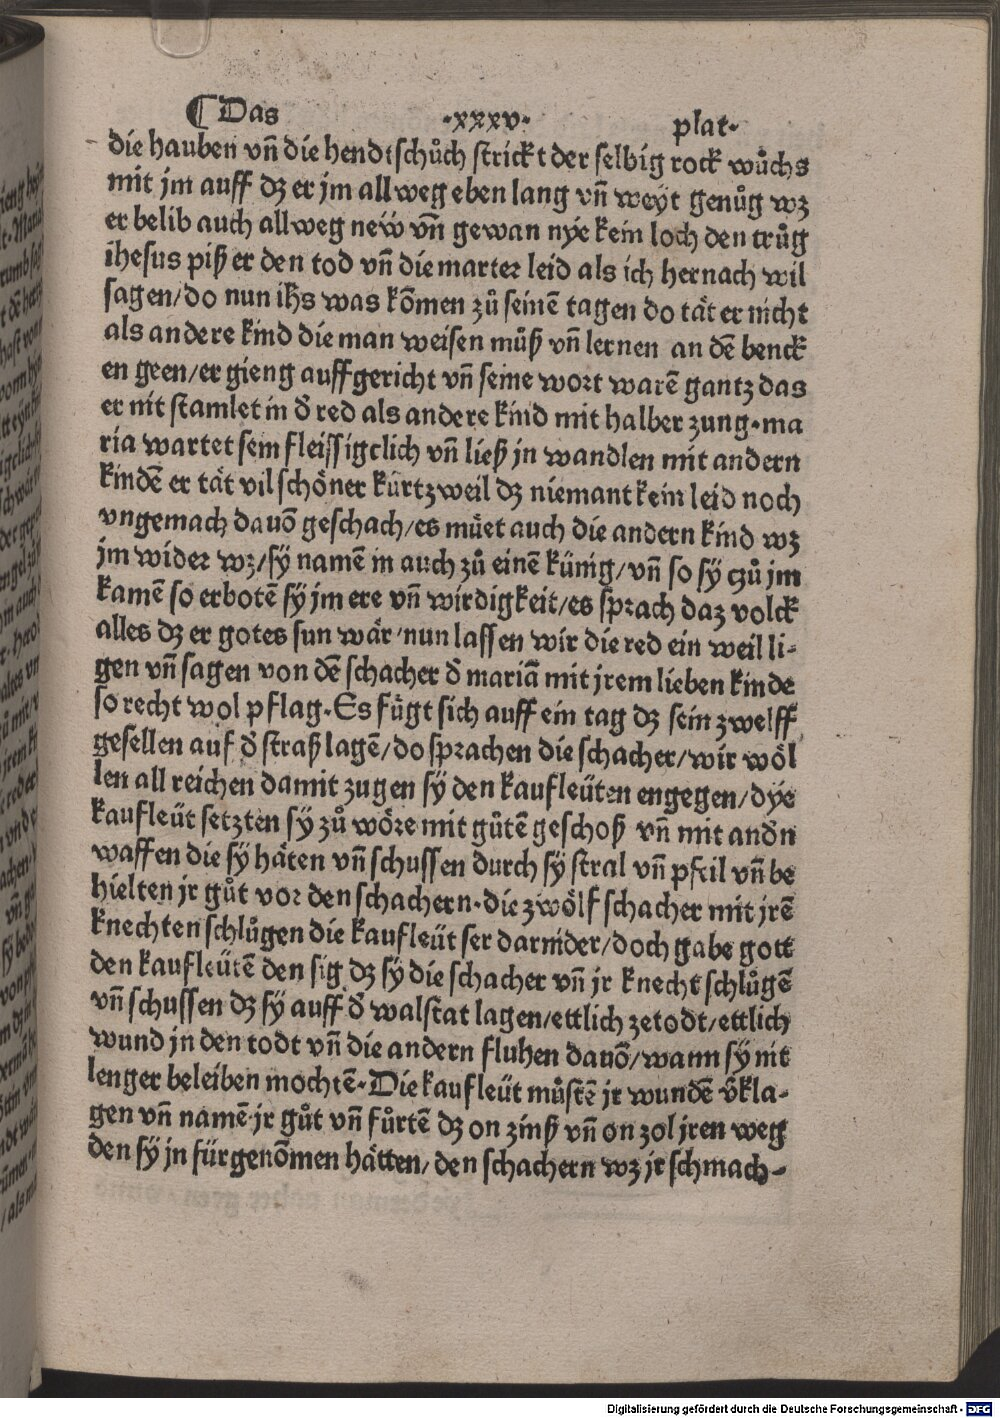 ¶ Das ·xxxv· plat·
die hauben vn̄ die hendtschůch strickt der selbig rock wůchs
mit jm auff dz er jm allweg eben lang vn̄ weyt genůg wz
er belib auch allweg neẅ vn̄ gewan nye kein loch den trůg
ihesus piß er den tod vn̄ die marter leid als ich hernach wil
sagen/do nun ih̄s was kōmen zů seinē tagen do tät er nicht
als andere kind die man weisen můß vn̄ lernen an dē benck
en geen/er gieng auffgericht vn̄ seine wort warē gantz das
er nit stamlet in d̄ red als andere kind mit halber zung·ma
ria wartet sein fleissigclich vn̄ ließ jn wandlen mit andern
kindē er tät vil schöner kürtzweil dz niemant kein leid noch
vngemach dauō geschach/es müet auch die andern kind wz
jm wider wz/sy namē in auch zů einē künig/vn̄ so sy czů jm
kamē so erbotē sy jm ere vn̄ wirdigkeit/es sprach daz volck
alles dz er gotes sun wär/nun lassen wir die red ein weil li-
gen vn̄ sagen von dē schacher d̄ mariā mit jrem lieben kinde
so recht wol pflag·Es fügt sich auff ein tag dz sein zwelff
gesellen auf d̄ straß lagē/do sprachen die schacher/wir wöl
len all reichen damit zugen sy den kaufleüten engegen/dye
kaufleüt setzten sy zů wöre mit gůtē geschoß vn̄ mit andn̄
waffen die sy häten vn̄ schussen durch sy stral vn̄ pfeil vn̄ be
hielten jr gůt vor den schachern·die zwölf schacher mit jrē
knechten schlůgen die kaufleüt ser darnider/doch gabe gott
den kaufleütē den sig dz sy die schacher vn̄ jr knecht schlůgē
vn̄ schussen dz sy auff d̄ walstat lagen/ettlich zetodt/ettlich
wund jn den todt vn̄ die andern fluhen dauō/wann sy nit
lenger beleiben mochtē·Die kaufleüt můstē jr wundē v̄kla-
gen vn̄ namē jr gůt vn̄ fůrtē dz on zinß vn̄ on zol jren weg
den sy jn fürgenōmen hätten/den schachern wz jr schmach-
Digitalisierung gefördert durch die Deutsche Forschungsgemeinschaft - DFG